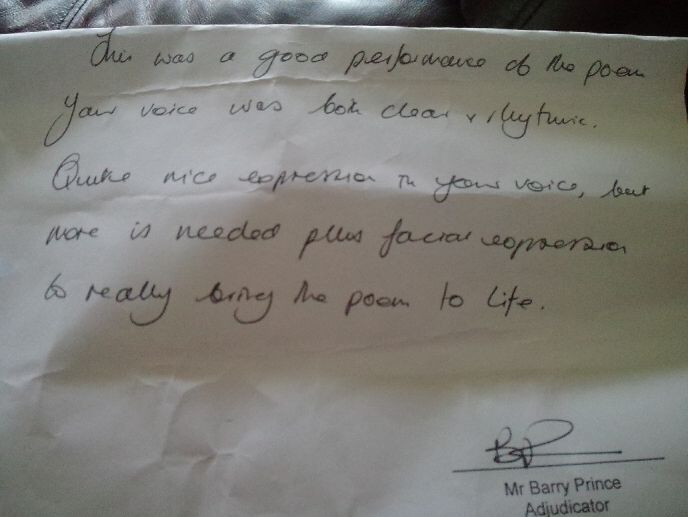 This was a good performance of the poem
Your voice was both clear & rhythmic.
Quite nice expression in your voice, but
more is needed plus facial expression
to really bring the poem to life.
BP
Mr Barry Prince
Adjudicator